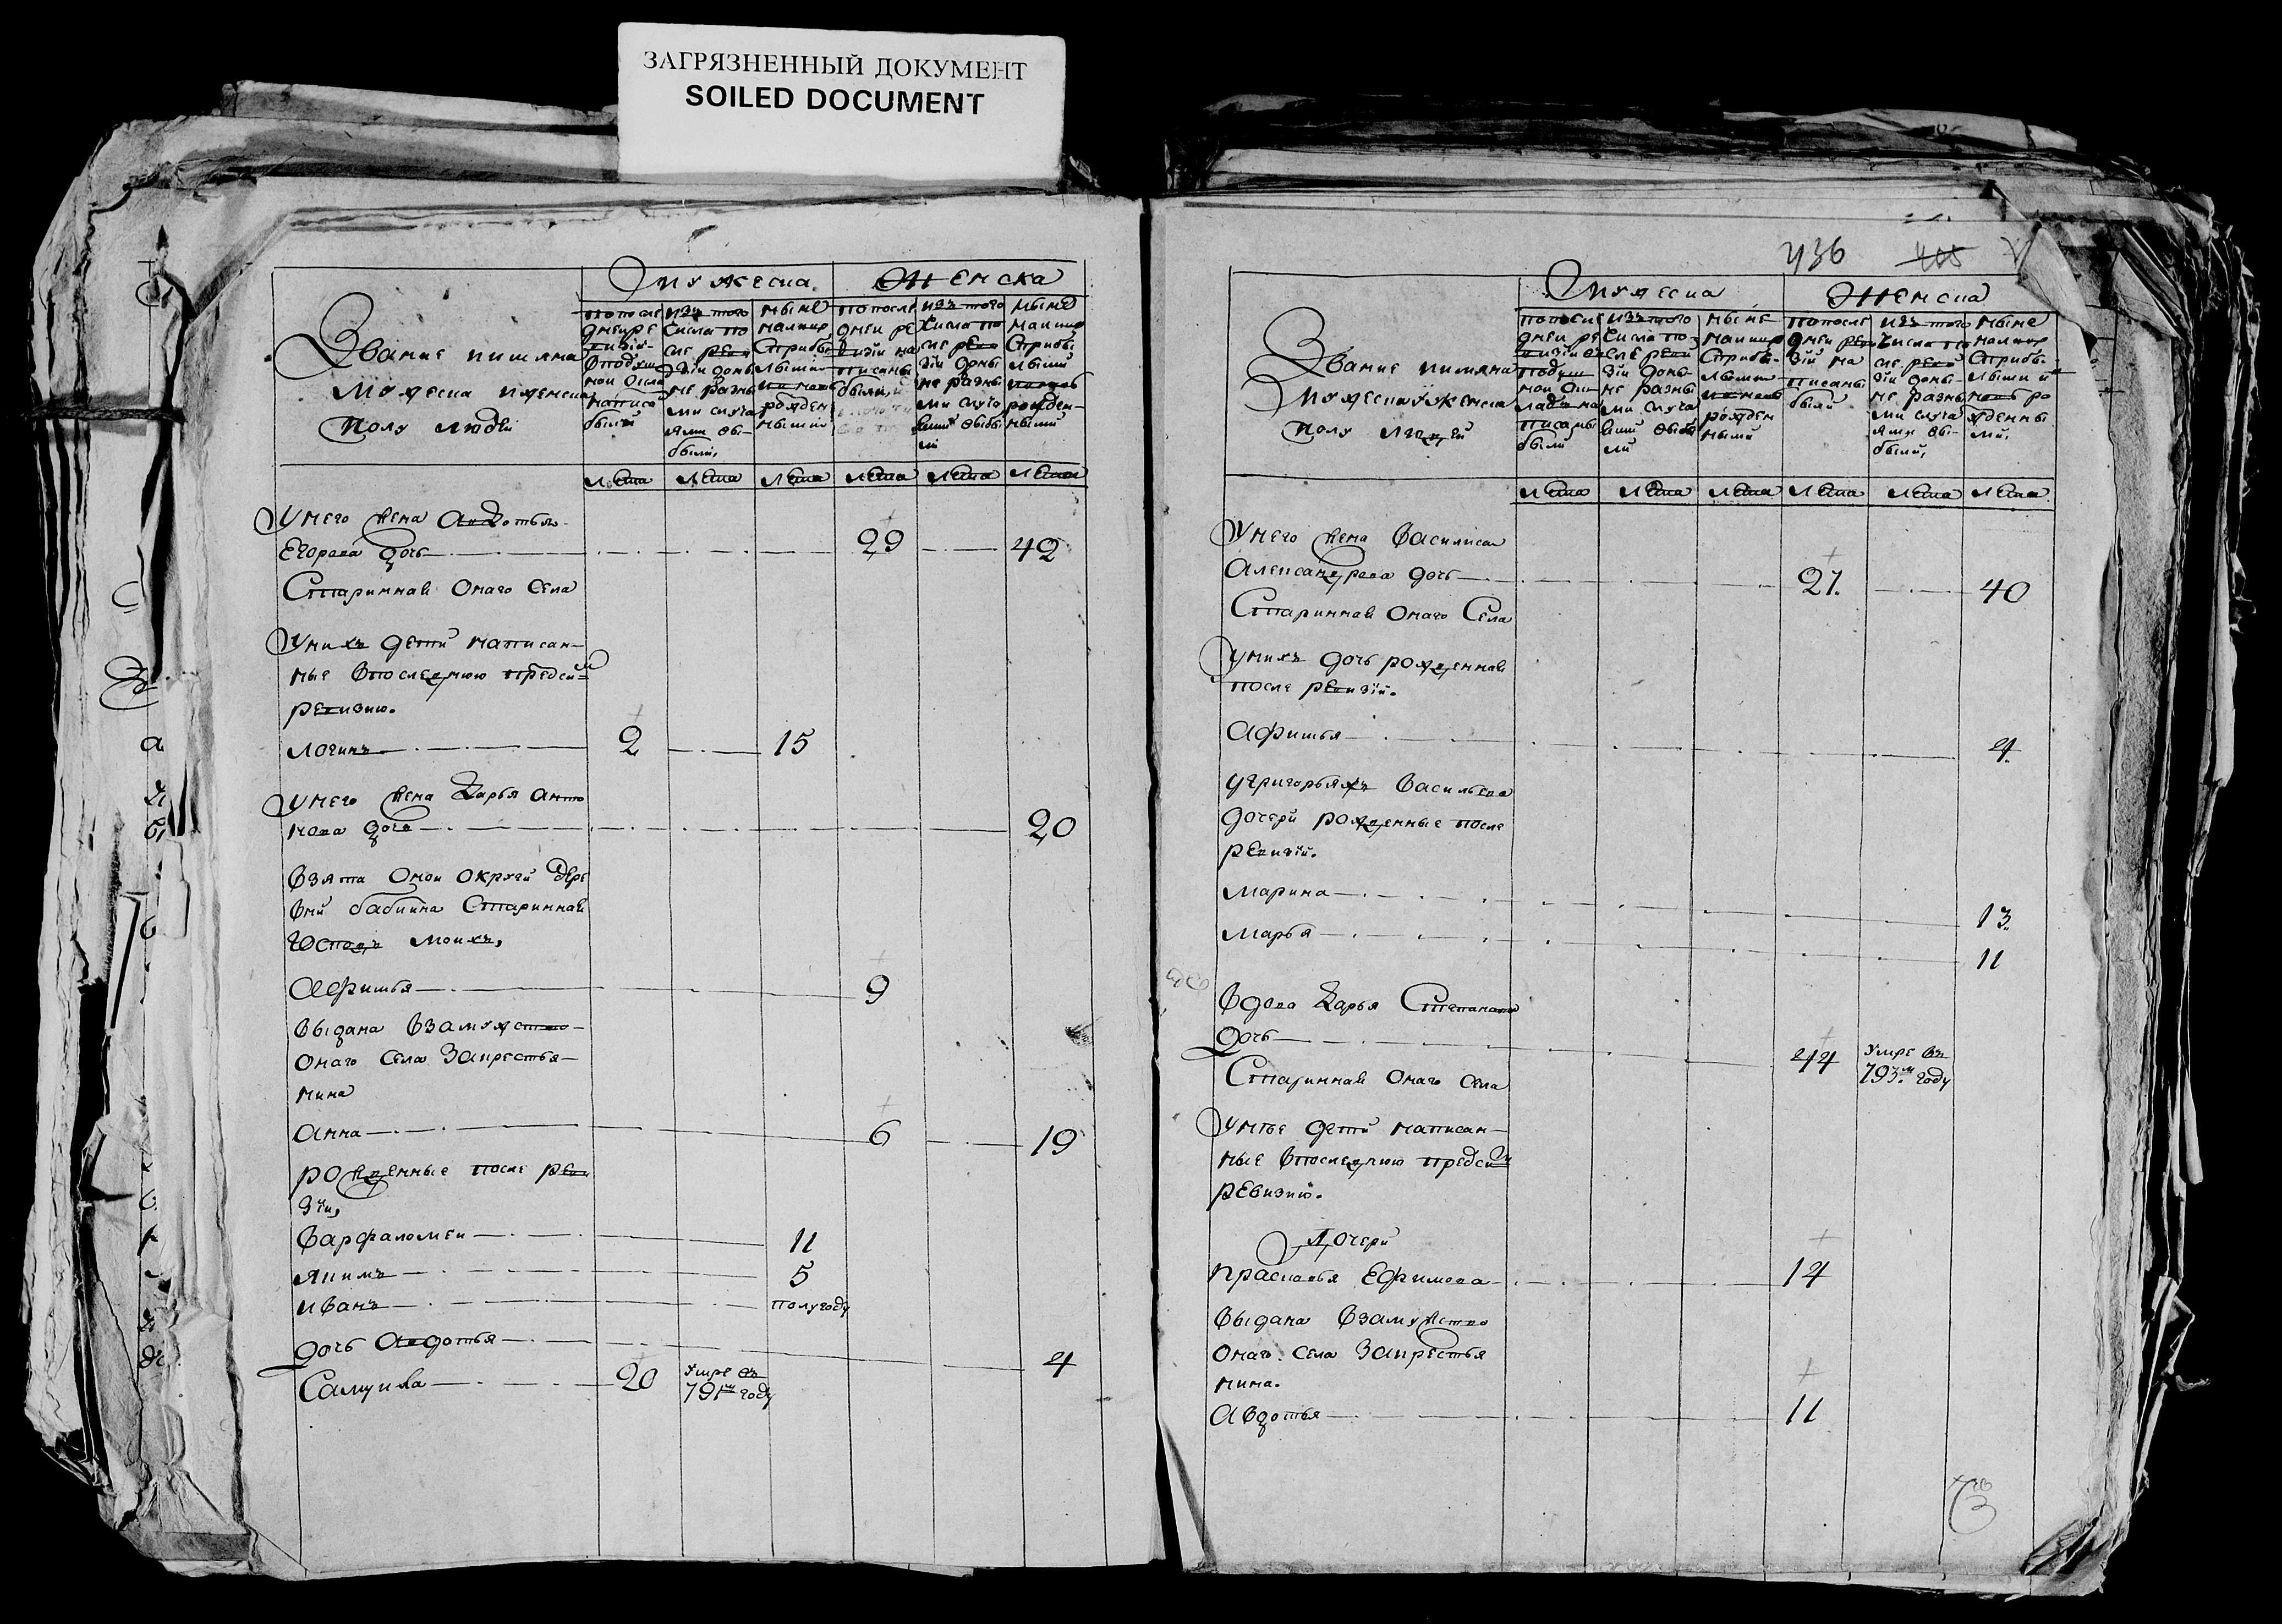 ЗАГРЯЗНЕННЫЙ ДОКУМЕНТ
SOILED DOCUMENT
Звание имяна
мужеска иженска
полу людей
мужеска
женска
попосле
днеи ре
визіи
вподуш
мои окла
написа
были
изъ того
числа по
сле реви
зіи доны
не разны
ми случа
ями вы
были,
ныне
налицо
сприбы
лыми
и новь
рожден
ными
попосле
днеи ре
визіи на
писаны
были,
изъ того
числа по
сле реви
зіи доны
не разны
ми случа
еми выбы
ли
ныне
налицо
сприбы
лыми
и новь
рожден-
ными
лета лета лета лета лета лета
Унего жена Авдотья
Егорева дочь 29 42
Стариннаѣ Онаго Села
Унихъ дети написан-
ные впоследнюю предсиⷨ
ревизию.
Логинъ 2 15
Унего жена Дарья Анто
нова дочь 20
Взята Оной округи дере
вни бабиина Стариннаѣ
Господъ моихъ,
Афимья 9
выдана взамужство
Онаго села Закрестья-
нина
Анна 6 19
рожденные после реви
зіи,
Варфаломеи 11
Якимъ 5
Иванъ полугоду
дочь Авдотья 4
Самуила 20 Умре въ
791ᵐ году
436 405
Звание имяна
мужеска иженска
полу людей
мужеска
женска
попосле
днеи ре
визіи в
подуш
мои ок
ладъ на
писаны
были
изъ того
числа по
сле реви
зіи доны
не разны
ми случа
еми выбы
ли
ныне
налицо
сприбы
лыми
и новь
рожден
ными
попосле
днеи реви
зіи на
писаны
были
изъ того
числа по
сле реви
зіи доны
не разны
ми случа
ями вы
были,
ныне
налицо
сприбы
лыми и
новь ро
жденны
ми,
лета лета лета лета лета лета
Унего жена Василиса
Александрова дочь 27. 40
Стариннаѣ Онаго Села
Унихъ дочь рожденнаѣ
после ревизіи.
Афимья 4
Угригорьяжъ Васильева
дочери рожденные после
ревизіи.
Марина 13
Марья 11
Вдова Дарья Степанова
дочь 44 Умре въ
793.ᵐ году
Стариннаѣ Онаго села
Унѣе дети написан-
ные впоследнюю предсиⷨ
ревизию.
Дочери
Прасковья Ефимова 14
выдана взамужство
Онаго села Закрестья
нина.
Авдотья 11